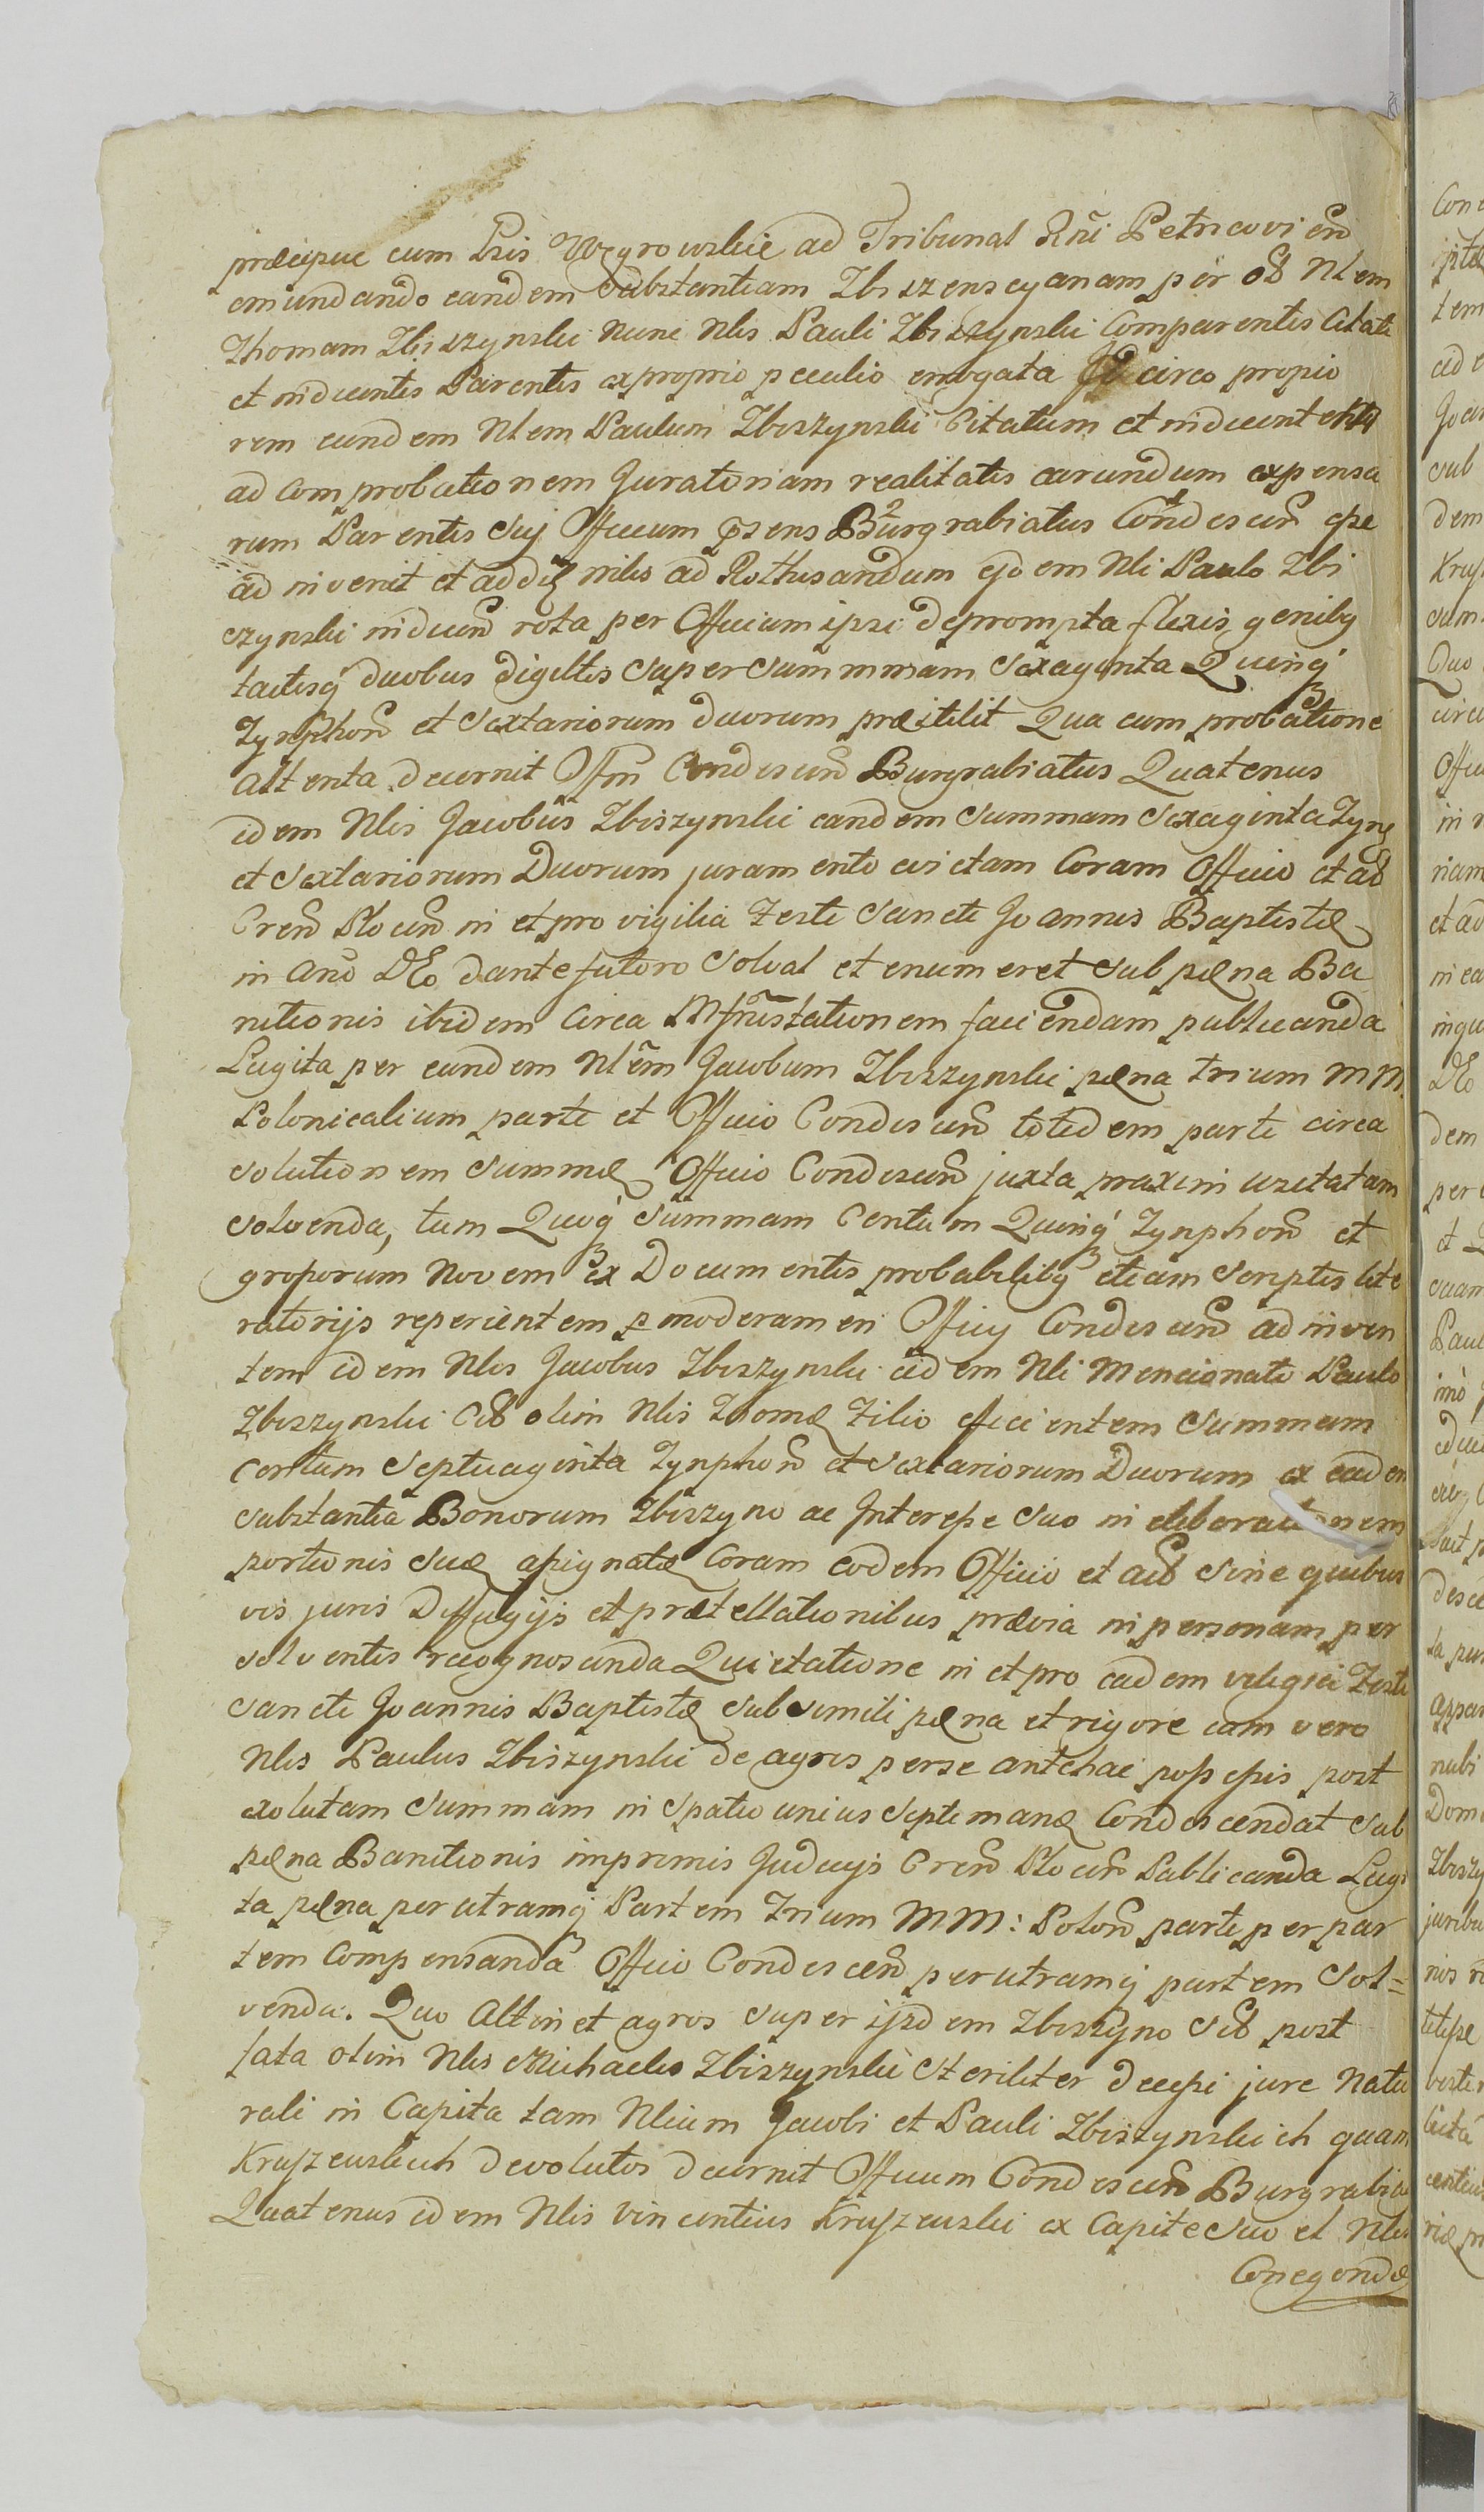 præcipue cum Gsis Węgrowskie ad Tribunal Rñi Petricovien̄
emundando eandem Substantiam Zbiszenscyanam per oƌ Nlem
Thomam Zbiszynski nunc Nlis Pauli Zbiszynski Comparentis Citati
et inducentis Parentis ex proprio peculio erogata Id circo propio
rem eundem Nlem Paulum Zbiszynski Citatum et inducentem
ad Comprobationem Juratoriam realitatis earundum expensa
rum Parentis Suj Officium psens Burgrabiatus Condescen̄ esse
ad invenit et addiq nilis ad Rothisandum ejdem Nli Paulo Zbi
szynski inducen̄ rota per Officium ipsi deprompta flexis genibq
tactisq́ duobus digittis Super Summmam Sexaginta Quinq́
Tynphon̄ et Sextariorum duorum præstitit Qua cum probatione
attenta decernit Offm̄ Condescen̄ Burgrabiatus Quatenus
idem Nlis Jacobus Zbiszynski eandem Summam Sexaginta Tynq
et Sextariorum Duorum juramento evictam Coram Officio et aƌ
Cren̄ Plocen̄ in et pro vigilia Festi Sancti Joannis Baptistæ
in Ano DEo dante futoro Solvat et enumeret Sub pæna Ba
nitionis ibidem Circa Mfnīstationem faciendam publicanda
Lugita per eundem Nlem̄ Jacobum Zbiszynski pæna trium MM.
Polonicalium parti et Officio Condescen̄ totidem parti circa
Solutionem Summæ Officio Condescen̄ juxta praxim usitatam
Solvenda, tum Quoq́ Summam Centum Quinq́ Tynphon̄ et
grossorum Novem ex Documentis probabilibq etiam Scriptis lite
ratorijs reperientem p moderamen Officy Condescen̄ ad inven
tem idem Nlis Jacobus Zbiszynski eidem Nli Mencionato Paulo
Zbiszynski Oƌ olim Nlis Thomæ Filio efficientem Summam
Centum Septuaginta Tynphon̄ et Sextariorum Duorum ex eadem
Substantia Bonorum Zbiszyno ac Interesse Suo in eliberationem
portionis Suæ assignatæ Coram eodem Officio et aƌ Sine quibus
vis juris Diffugijs et prætellationibus prævia in personam per
Solventis recognoscenda Quietatione in et pro eadem viligiei Festi
Sancti Joannis Baptistæ Sub simili pæna et rigore cum vero
Nlis Paulus Zbiszynski de agris per se antehac possessis post
exolutam Summam in Spatio unius Septimanæ Condescendat Sub
pæna Banitionis imprimis Judicijs Cren̄ Plocen̄ Publicanda Lugi
ta pæna per utramq́ Partem Trium MM: Polon̄ parti per par
tem Compensanda Officio Condescen̄ per utramq́ partem Sol=
venda. Quo Attinet agros Super ijsdem Zbiszyno Sƌ post
fata olim Nlis Michaelis Zbiszynski Steriliter decessi jure natu
rali in Capita tam Nlium Jacobi et Pauli Zbiszynskich quam
Kryszewskich devolutos decernit Officium Condescen̄ Burgrabia
Quatenus idem Nlis Vincentius Kryszewski ex Capite Suo et Nlis
Conegondæ